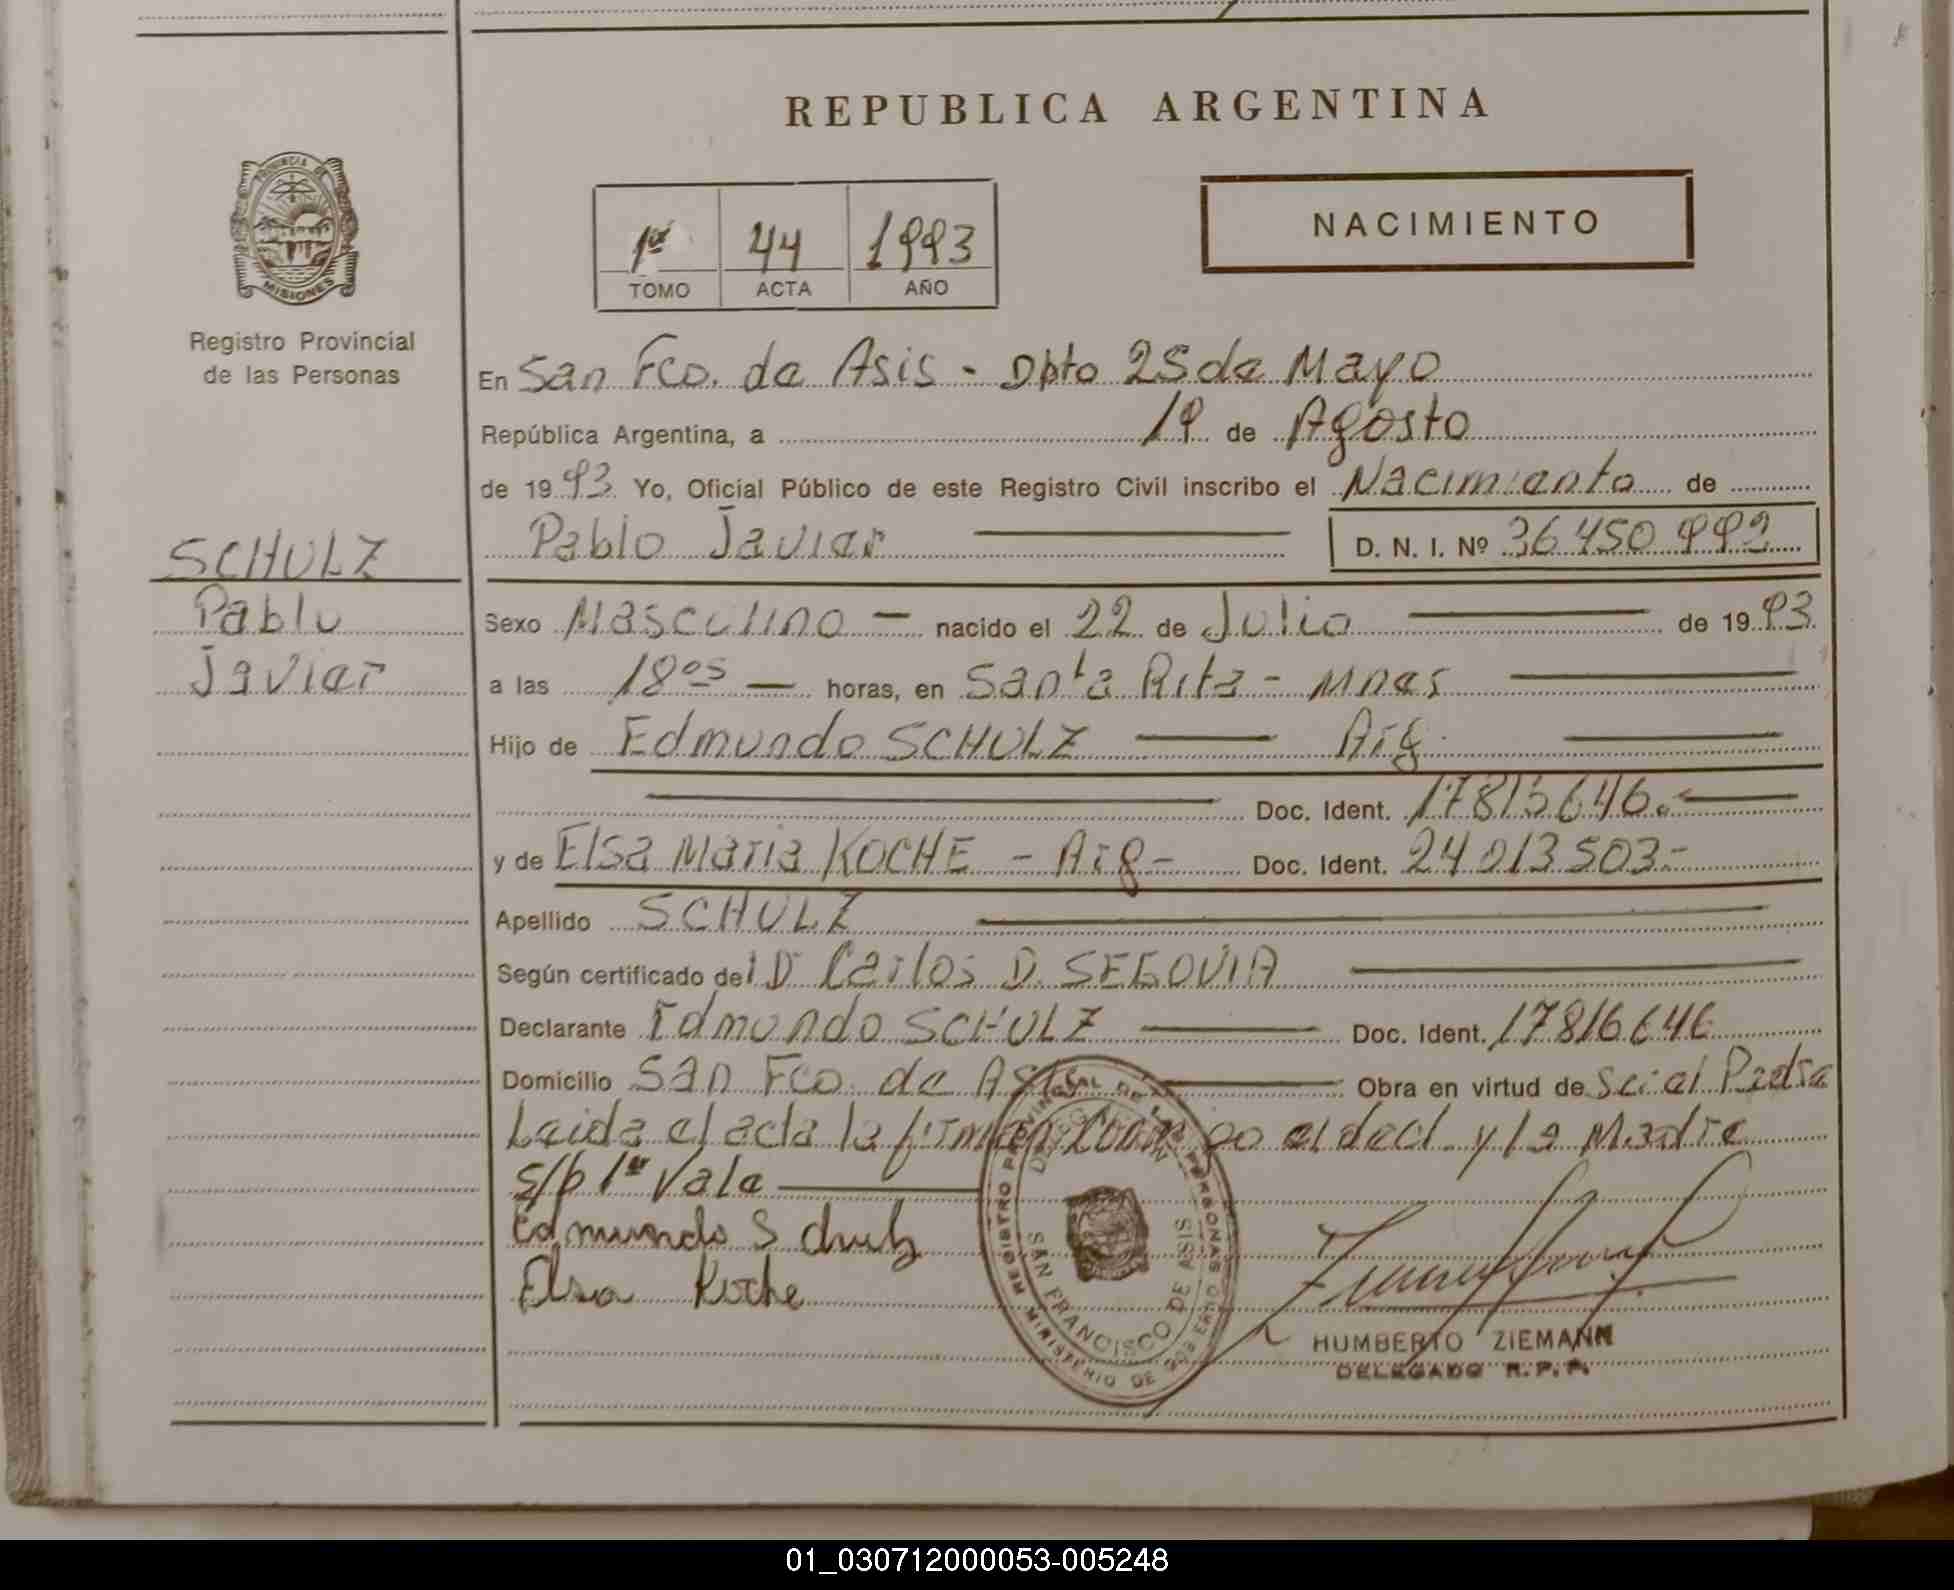 REPUBLICA ARGENTINA
PROVINCIA DE
MISIONES
Registro Provincial
de las Personas
1er 44 1993
TOMO ACTA AÑO
NACIMIENTO
En San Fco. de Asis - Dpto 25 de Mayo
República Argentina, a 19 de Agosto
de 1993 Yo, Oficial Público de este Registro Civil inscribo el Nacimiento de
Pablo Javier D. N. I. Nº 36 450 992
SCHULZ
Pablo
Javier
Sexo Masculino nacido el 22 de Julio de 1993
a las 18os horas, en Santa Rita - Mnes
Hijo de Edmundo SCHULZ Arg.
Doc. Ident. 17815646.
y de Elsa Maria KOCHE - Arg - Doc. Ident. 24 013 503-
Apellido SCHULZ
Según certificado del Dr Carlos D. SEGOVIA
Declarante Edmundo SCHULZ Doc. Ident. 17816646
Domicilio San Fco. de Asis Obra en virtud de Ser el Padre
Leida el acta la firman el decl. y la Madre
s/p 1er Vale
Edmundo Schulz
Elsa Koche
REGISTRO PROVINCIAL DE LAS PERSONAS
MINISTERIO DE GOBIERNO
DELEGACION
SAN FRANCISCO DE ASIS
HUMBERTO ZIEMANN
DELEGADO R. P. P.
01_030712000053-005248